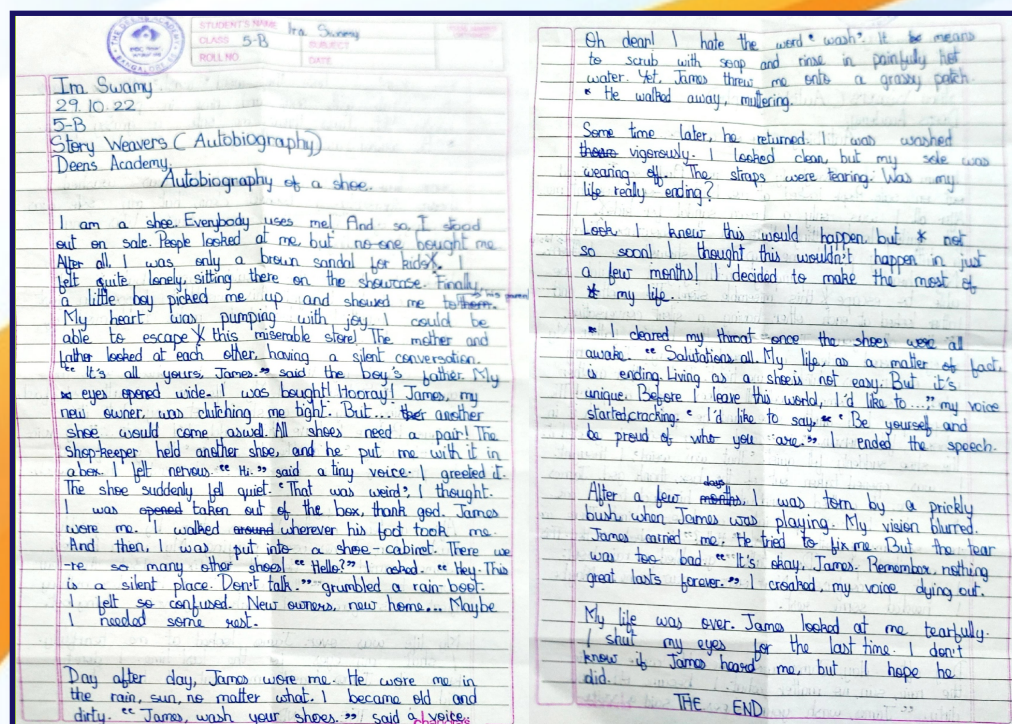 THE DEENS ACADEMY
STUDENT'S NAME Ira Swamy
CLASS 5-B SUBJECT
ROLL NO DATE
Ira Swamy
29.10.22
5-B
Story Weavers (Autobiography)
Deens Academy.
Autobiography of a shoe.
I am a shoe. Everybody uses me! And so, I stood
out on sale. People looked at me, but no-one bought me
After all, I was only a brown sandal for kids. I
felt quite lonely, sitting there on the showcase. Finally,
a little boy picked me up and showed me to them. his parent
My heart was pumping with joy. I could be
able to escape this miserable store! The mother and
father looked at each other, having a silent conversation.
"It's all yours, James." said the boy's father. My
eyes opened wide. I was bought! Hooray! James, my
new owner, was clutching me tight. But... another
shoe would come aswel. All shoes need a pair! The
Shop-keeper held another shoe, and he put me with it in
a box. I felt nervous. "Hi." said a tiny voice. I greeted it.
The shoe suddenly fell quiet. 'That was weird', I thought.
I was opened taken out of the box, thank god. James
wore me. I walked around wherever his foot took me.
And then, I was put into a shoe-cabinet. There we
-re so many other shoes! "Hello?" I asked. "Hey. This
is a silent place. Don't talk." grumbled a rain-boot.
I felt so confused. New owners, new home... Maybe
I needed some rest.
Day after day, James wore me. He wore me in
the rain, sun, no matter what. I became old and
dirty. "James, wash your shoes." said a voice.
Oh dear! I hate the word 'wash'. It means
to scrub with soap and rinse in painfully hot
water. Yet, James threw me onto a grassy patch.
He walked away, muttering.
Some time later, he returned. I was washed
vigorously. I looked clean, but my sole was
wearing off. The straps were tearing. Was my
life really ending?
Look I knew this would happen but not
so soon! I thought this wouldn't happen in just
a few months! I decided to make the most of
my life.
I cleared my throat once the shoes were all
awake. "Salutations all. My life, as a matter of fact,
is ending. Living as a shoe is not easy. But it's
unique. Before I leave this world, I'd like to..." my voice
started,cracking. "I'd like to say, 'Be yourself and
be proud of who you are." I ended the speech.
After a few months, days I was torn by a prickly
bush when James was playing. My vision blurred.
James carried me. He tried to fix me. But the tear
was too bad. "It's okay, James. Remember, nothing
great lasts forever." I croaked, my voice dying out.
My life was over. James looked at me tearfully.
I shut my eyes for the last time. I don't
know if James heard me, but I hope he
did.
THE END